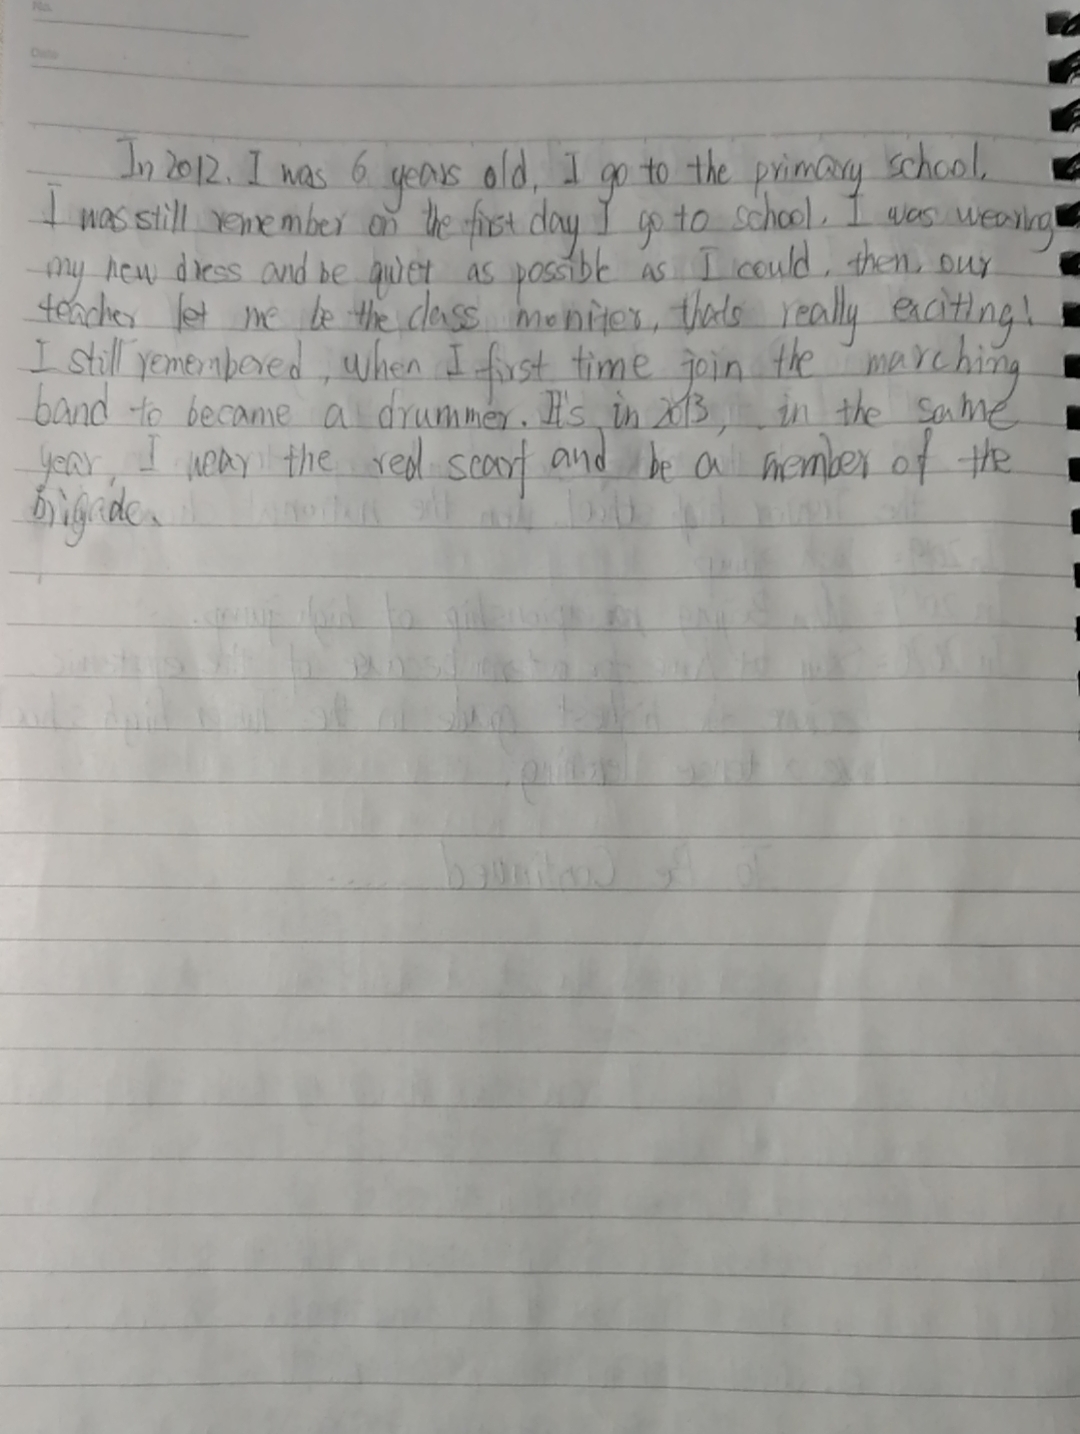 No.
Date
In 2012. I was 6 years old, I go to the primary school.
I was still remember on the first day I go to school. I was wearing
my new dress and be quiet as possible as I could. then, our
teacher let me be the class moniter, thats really exciting!
I still remembered, when I first time join the marching
band to became a drummer. It's in 2013, in the same
year, I wear the red scarf and be a member of the
brigade.
To Be Continued ......